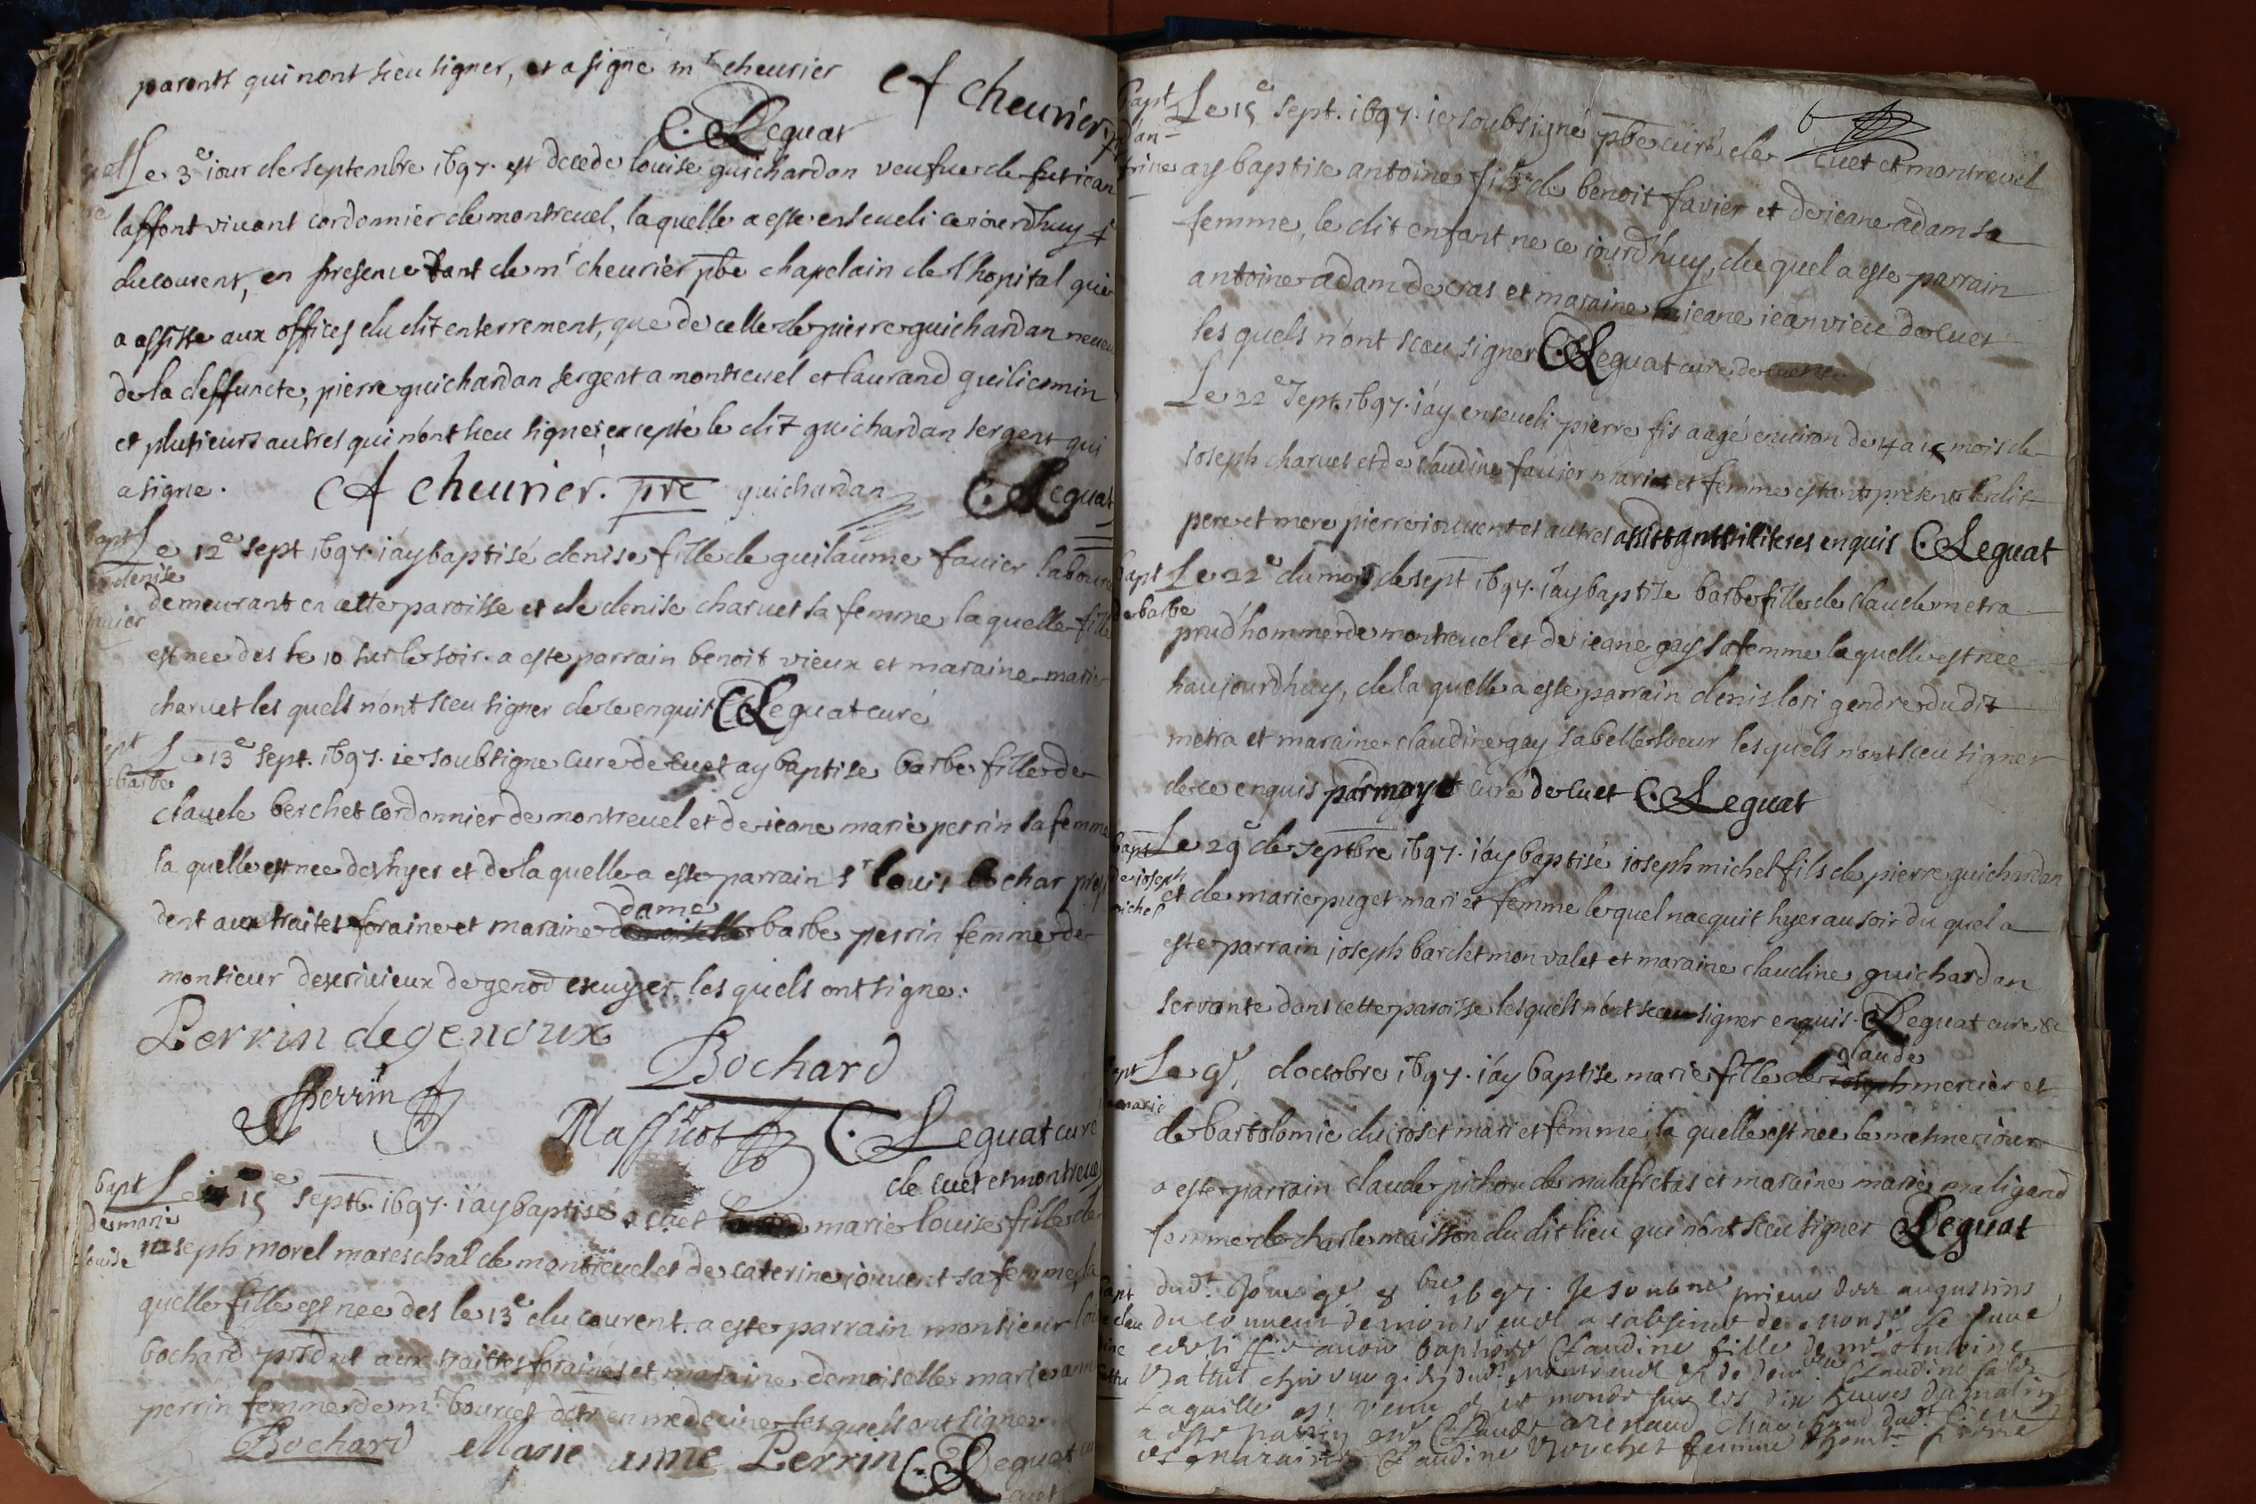 parents qui nont sceu signer, et a signé mr cheurier
C. Leguat
cf cheurier
Le 3e iour de septembre 1697. est decedé louise guichardan veufue de fut iean
laffont viuant cordonnier de montreuel, laquelle a esté enseueli ce iourdhuy 4
du courent, en presence tant de mr cheurier pbre chapelain de l hopital qui
a assisté aux offices du dit enterrement, que de celle de pierre guichardan neueu
de la deffuncte, pierre guichardan sergent a montreuel et laurand
et plusieurs autres qui n'ont sceu signer, excepté le dit guichardan sergent qui
a signé.
cf cheurier. pre guichardan C. Leguat
bapt
denise
Le 12e sept 1697. i'ay baptisé denise fille de guilaume favier
demeurant en cette paroisse et de denise charuet sa femme laquelle fille
est nee des le 10 sur le soir. a esté parrain benoit vieux et maraine marie
charuet les quels n'ont sceu signer de ce enquis C. Leguat curé
barbe
Le 13e sept. 1697. ie soubsigné curé de cuet ay baptisé barbe fille de
claude berchet cordonnier de montreuel et de ieane marie perrin sa femme
la quelle est nee des hyer et de la quelle a esté parrain sr louis bochar presi
dent aux traites foraine et maraine dame barbe perrin femme de
monsieur descriuieux de genod escuyer, les quels ont signé.
Perrin degenoux
Bochard
Perrin
C. Leguat curé
de cuet et montreuel
bapt
de marie
louise
Le 15e septb. 1697. i'ay baptisé a cuet marie louise fille de
ioseph morel mareschal de montreuel et de caterine iouuent sa femme, la
quelle fille est nee des le 13e du courent. a esté parrain monsieur
bochard prsdnt aux traittes foraines et maraine demoiselle marie anne
perrin femme de mr bources dctr en medecine lesquels ont signé
Bochard Marie anne Perrin C. Leguat
bapt
Le 15e sept. 1697. ie soubsigné pbre curé de cuet et montreuel
ay baptisé antoine fils de benoit favier et de ieane adam sa
femme, le dit enfant né ce iourd'huy, du quel a esté parrain
antoine adam de cras et maraine ieane iean vieu de cuet
les quels n'ont sceu signer C. Leguat curé de
Le 22e sept. 1697. i'ay enseueli pierre fis aagé enuiron de 4 a 5 mois de
ioseph charuet et de claudine fauier mariet et femme estants presents le dit
pere et mere pierre iouuent et autres assistants illiteres enquis C. Leguat
bapt
de barbe
Le 22e du mois de sept 1697. i'ay baptisé barbe fille de claude metra
prud'homme de montreuel et de ieane gay sa femme laquelle est nee
haujourdhuy, de la quelle a esté parrain denis lori gendre du dit
metra et maraine claudine gay sa belle soeur les quels n'ont sceu signer
de ce enquis par moy curé de cuet C. Leguat
bapt
de joseph
michel
Le 29e de septbre 1697. i'ay baptisé ioseph michel fils de pierre guichardan
et de marie puget mari et femme lequel nacquit hyer au soir du quel a
esté parrain joseph bardet mon valet et maraine claudine guichardan
servante dans cette paroisse lesquels n'ont sceu signer enquis. C. Leguat curé &c
marie
Le 9e, d'octobre 1697. i'ay baptisé marie fille de claude mercier et
de bartolomie du croset mari et femme, la quelle est nee le mesme iour
a esté parrain claude pichou de malafretas et maraine marie maligand
femme de charle maisson du dit lieu qui n'ont sceu signer C. Leguat
bapt
dud. 8bre 1697. Je soubné prieur des augustins
du conuent de montreuel a labsence de monsr le curé
avoir baptisé Claudine fille de mr antoine
laquelle est venu au monde sur les dix heures du matin
a esté parrin mr Claude arenaud marchand dud. lieu
et maraine Claudine femme